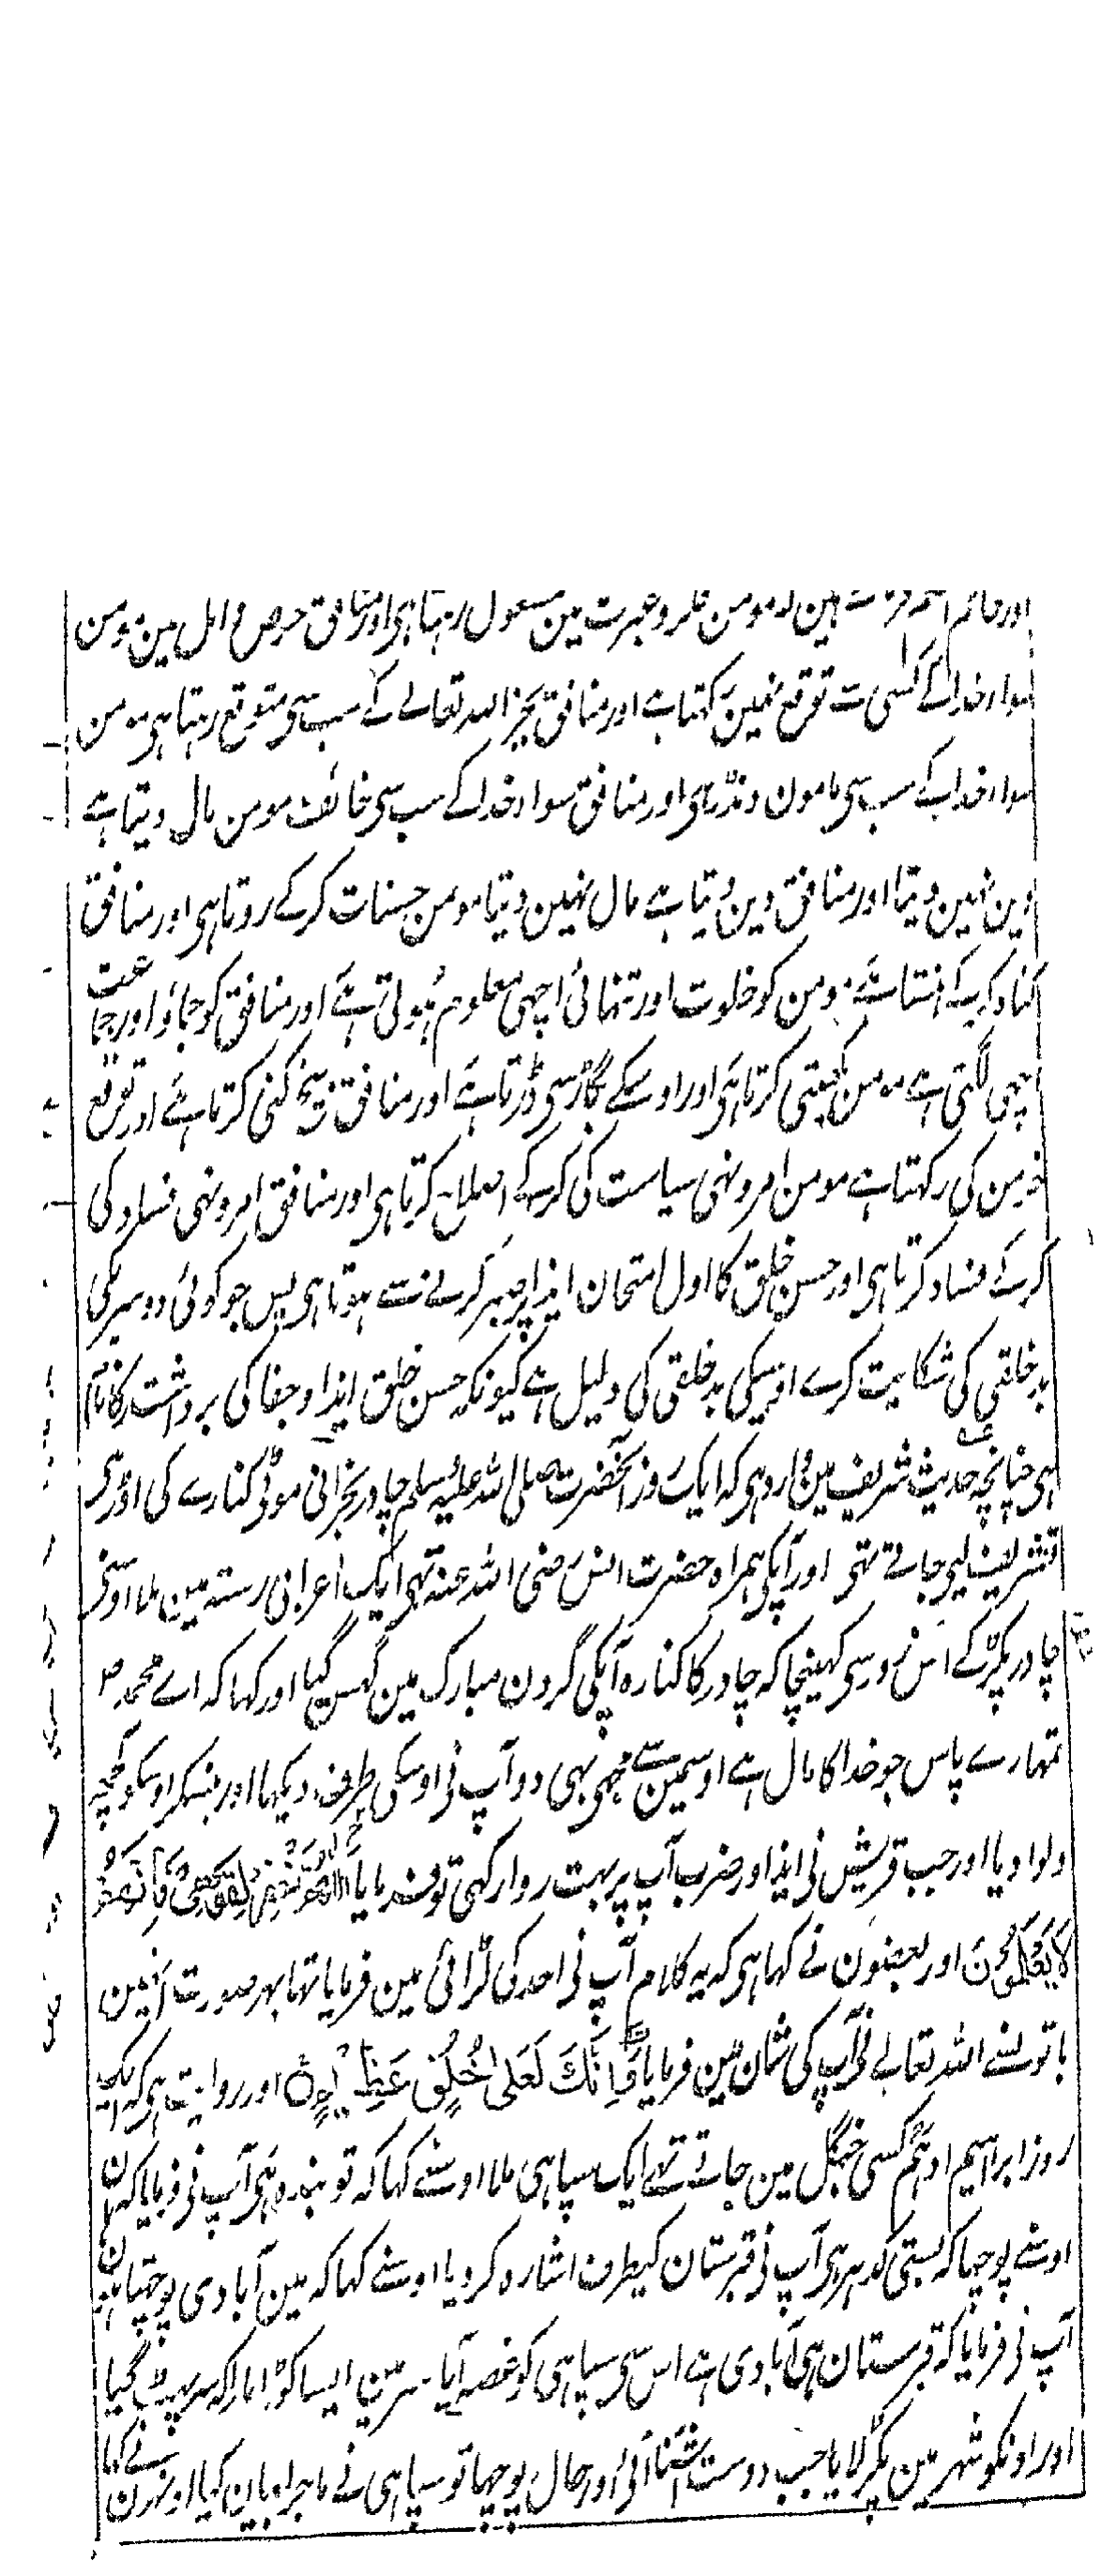 اور حاتم اصم فرماتے ہین کہ مومن فکر و عبرت مین مشغول رہتا ہی اور منافق حرص و امل مین مومن
سوا رخدا کے کسی سے توقع نہین رکہتا ہے اور منافق بجز اللہ تعالے کے سب سی متوقع رہتا ہی مومن
سوا رخدا کے سب سی مامون و نڈر ہی اور منافق سوا رخدا کے سب سی خائف مومن مال دیتا ہے
دین نہین دیتا اور منافق دین دیتا ہے مال نہین دیتا مومن حسنات کرکے روتا ہی اور منافق
گناہ کرکے ہنستا ہے مومن کو خلوت اور تنہائی اچہی معلوم ہوتی ہے اور منافق کو جماؤ اور جماعت
اچہی لگتی ہے مومن کہیتی کرتا ہی اور اوسکے بگاڑ سی ڈرتا ہے اور منافق بیخ کنی کرتا ہے اور توقع
خرمن کی رکہتا ہے مومن امر و نہی سیاست کی کرکے اصلاح کرتا ہی اور منافق امر و نہی فساد کی
کرکے فساد کرتا ہی اور حسن خلق کا اول امتحان ایذا پر صبر کرنے سے ہوتا ہی پس جو کوئی دوسریکی
بد خلقی کی شکایت کرے اوسیکی بد خلقی کی دلیل ہے کیونکہ حسن خلق ایذا و جفا کی برداشت کا نام
ہی چنانچہ حدیث شریف مین وارد ہی کہ ایک روز آنحضرت صلی اللہ علیہ وسلم چادر نجرانی موٹی کنارے کی اوڑہی
تشریف لیجاتے تہی اور آپکی ہمراہ حضرت انس رضی اللہ عنہ تہی ایک اعرابی رستہ مین ملا اوسنی
چادر پکڑ کے اس زور سی کہینچا کہ چادر کا کنارہ آپکی گردن مبارک مین گہس گیا اور کہا کہ اے محمد ص
تمہارے پاس جو خدا کا مال ہے اوسمین سے مجہی بہی دو آپ نی اوسکی طرف دیکہا اور ہنسکر اوسکو کچہہ
دلوا دیا اور جب قریش نی ایذا اور ضرب آپ پر بہت روا رکہی تو فرمایا اللهم اغفر لقومي فانهم
لَا يَعْلَمُوْنَ اور بعضون نے کہا ہی کہ یہ کلام آپ نی احد کی لڑائی مین فرمایا تہا بہر صورت انہین
باتو نسے اللہ تعالے نی آپ کی شان مین فرمایا وَاِنَّكَ لَعَلٰى خُلُقٍ عَظِيْمٍ اور روایت ہی کہ ایک
روز ابراہیم ادہم کسی جنگل مین جاتے تہے ایک سپاہی ملا اوسنے کہا کہ تو بندہ ہی آپ نی فرمایا کہ ہان
اوسنے پوچہا کہ بستی کدہر ہی آپ نی قبرستان کیطرف اشارہ کر دیا اوسنے کہا کہ مین آبادی پوچہتا ہون
آپ نی فرمایا کہ قبرستان ہی آبادی ہے اس سی سپاہی کو غصہ آیا سر مین ایسا کوڑا مارا کہ سر پہٹ گیا
اور اونکو شہر مین پکڑ لایا جب دوست آشنا آئی اور حال پوچہا تو سپاہی نے ماجرا بیان کیا اونہون نے کہا